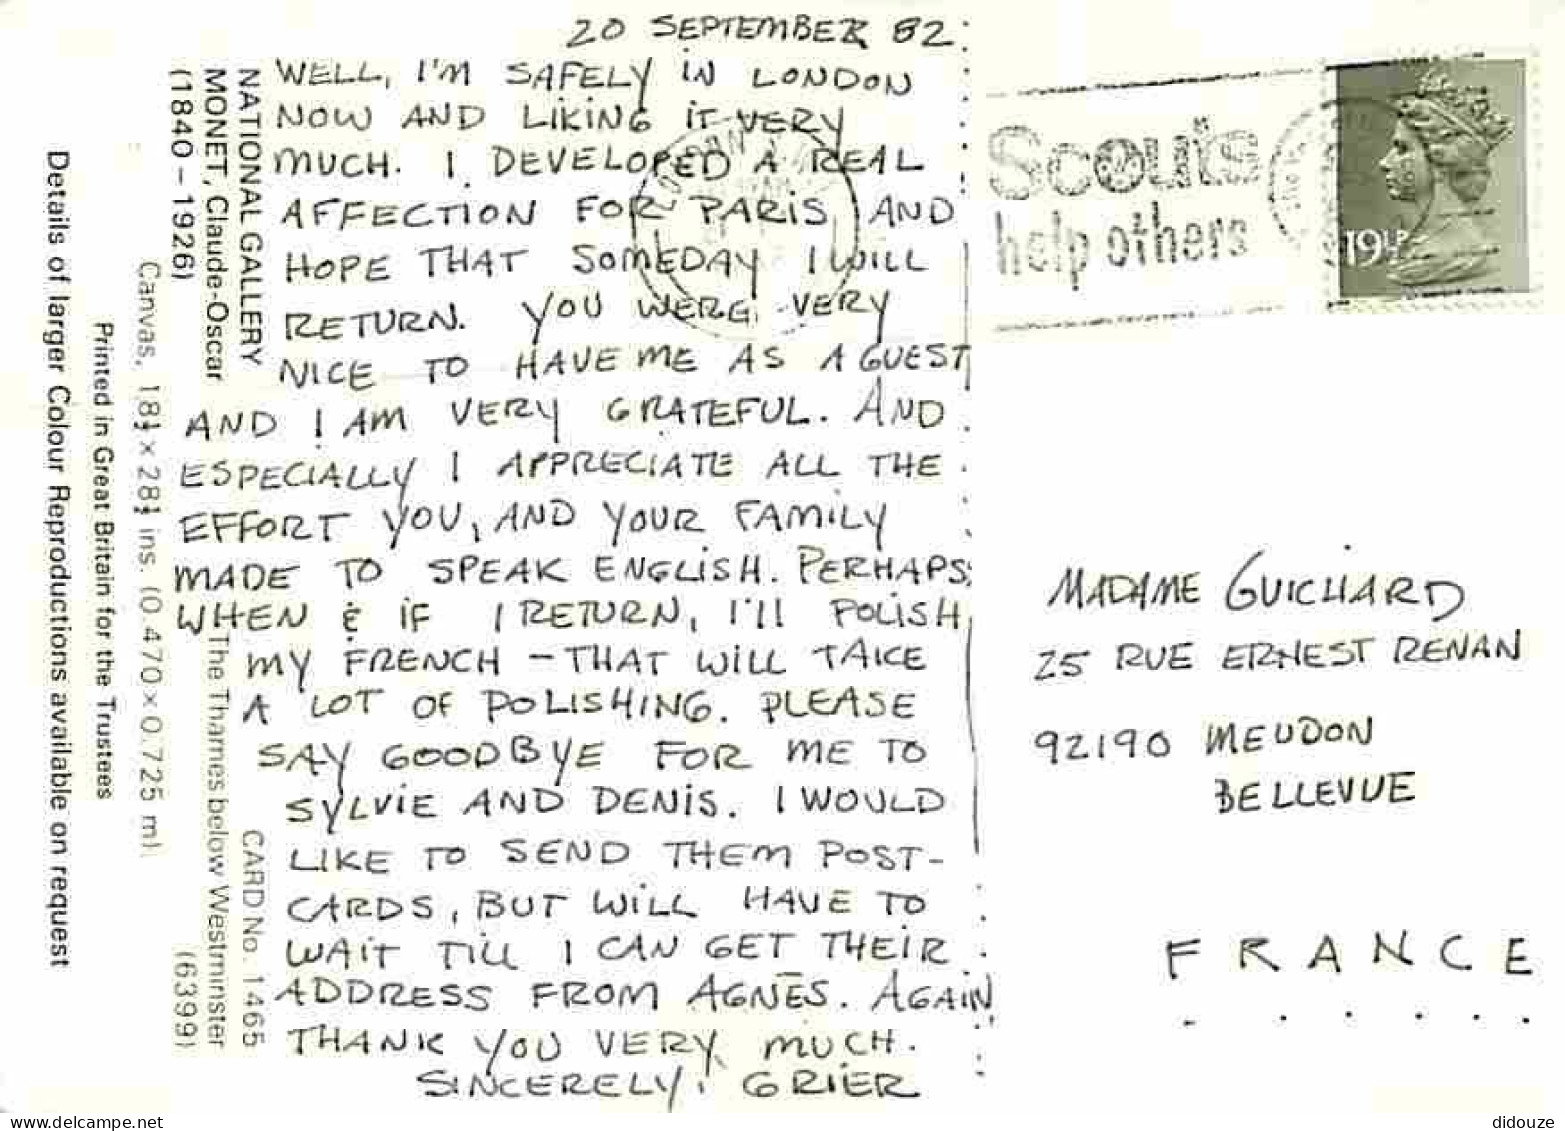 20 SEPTEMBER 82
WELL, I'M SAFELY IN LONDON
NOW AND LIKING IT VERY
MUCH. I DEVELOPED A REAL
AFFECTION FOR PARIS AND
HOPE THAT SOMEDAY I WILL
RETURN. YOU WERE VERY
NICE TO HAVE ME AS A GUEST
AND I AM VERY GRATEFUL. AND
ESPECIALLY I APPRECIATE ALL THE
EFFORT YOU, AND YOUR FAMILY
MADE TO SPEAK ENGLISH. PERHAPS
WHEN & IF I RETURN, I'll POLISH
MY FRENCH – THAT WILL TAKE
A LOT OF POLISHING. PLEASE
SAY GOODBYE FOR ME TO
SYLVIE AND DENIS. I WOULD
LIKE TO SEND THEM POST-
CARDS, BUT WILL HAVE TO
WAIT TILL I CAN GET THEIR
ADDRESS FROM AGNÈS. AGAIN
THANK YOU VERY MUCH.
SINCERELY, GRIER
NATIONAL GALLERY CARD No. 1465
MONET, Claude-Oscar The Thames below Westminster
(1840–1926) (6399)
Canvas, 18½ x 28½ ins. (0.470 x 0.725 m).
Printed in Great Britain for the Trustees
Details of larger Colour Reproductions available on request
Scouts
help others
19½P
MADAME GUICHARD
25 RUE ERNEST RENAN
92190 MEUDON
BELLEVUE
FRANCE
didouze
delcampe.net